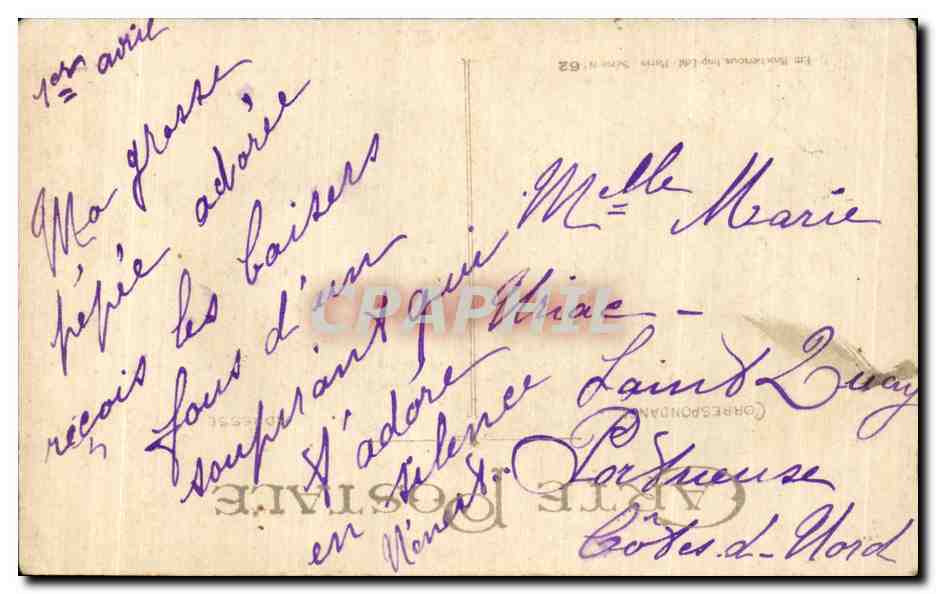 1er avril
Ma grosse
pépée adorée
reçois les baisers
fous d'un
soupirant qui
t'adore
en silence
Mlle Marie
Uriac -
Saint Quay
Portrieuse
Côtes-d-Nord
CARTE POSTALE
CORRESPONDANCE
ADRESSE
Paris Série N° 62
CPAPHIL